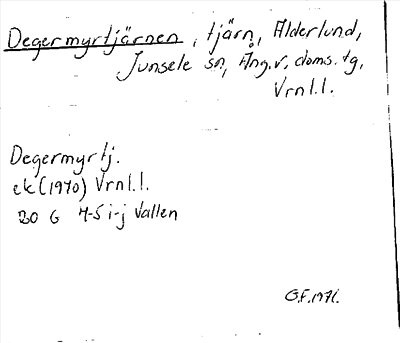 Degermyrtjärnen, tjärn, Ålderlund,
Junsele sn, Ång.v. doms. tg,
Vrnl.l.
Degermyrtj.
ek (1970) Vrnl.l.
20 G 4-5 i-j Vallen
G.F. 1971.